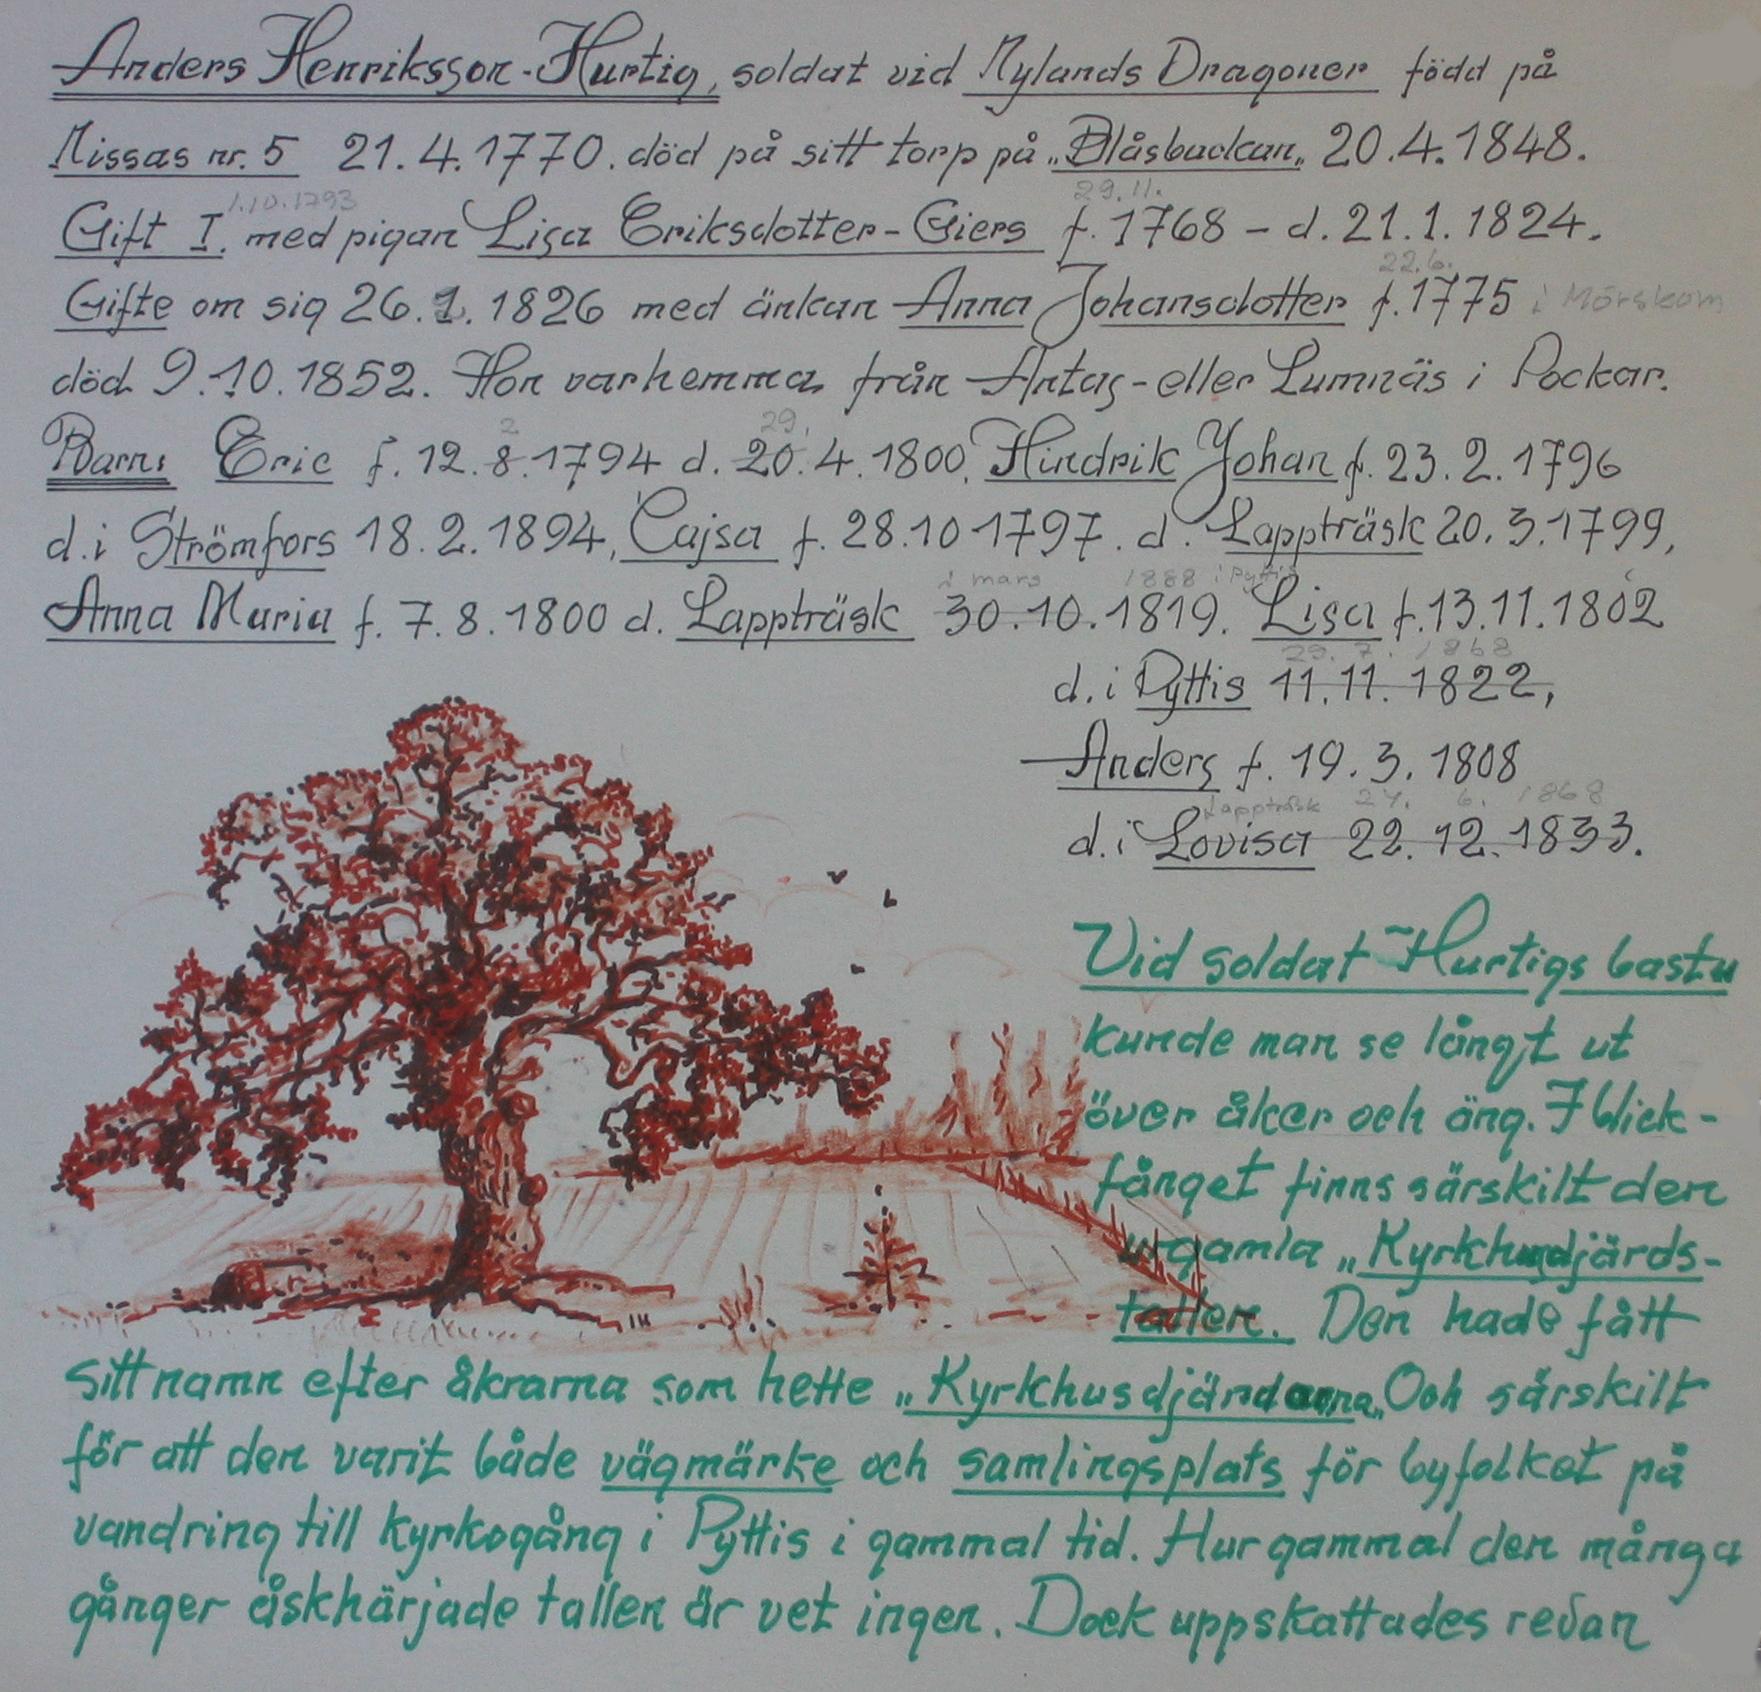 Anders Henriksson-Hurtig, soldat vid Nylands Dragoner född på
Nissas nr. 5 21.4.1770. död på sitt torp på „Blåsbackan„ 20.4.1848.
1.10.1793 29.11.
Gift I. med pigan Lisa Eriksdotter-Giers f. 1768 – d. 21.1.1824.
22.6.
Gifte om sig 26.1.1826 med änkan Anna Johansdotter f. 1775 i Mörskom
död 9.10.1852. Hon var hemma från Antas- eller Lumnäs i Pockar.
2 29.
Barn: Eric f. 12.8.1794 d. 20.4.1800, Hindrik Johan f. 23.2.1796
d. i Strömfors 18.2.1894, Cajsa f. 28.10 1797. d. Lappträsk 20.3.1799,
i mars 1888 i Pyttis
Anna Maria f. 7.8.1800 d. Lappträsk 30.10.1819. Lisa f. 13.11.1802
29. 7. 1868
d. i Pyttis 11.11.1822,
Anders f. 19.3.1808
Lappträsk 24. 6. 1868
d. i Lovisa 22.12.1833.
Vid soldat Hurtigs bastu
kunde man se långt ut
över åker och äng. I blick-
fånget finns särskilt den
urgamla „Kyrkhusdjärds-
tallen. Den hade fått
sitt namn efter åkrarna som hette „Kyrkhusdjärdarna„ Och särskilt
för att den varit både vägmärke och samlingsplats för byfolket på
vandring till kyrkogång i Pyttis i gammal tid. Hur gammal den många
gånger åskhärjade tallen är vet ingen. Dock uppskattades redan